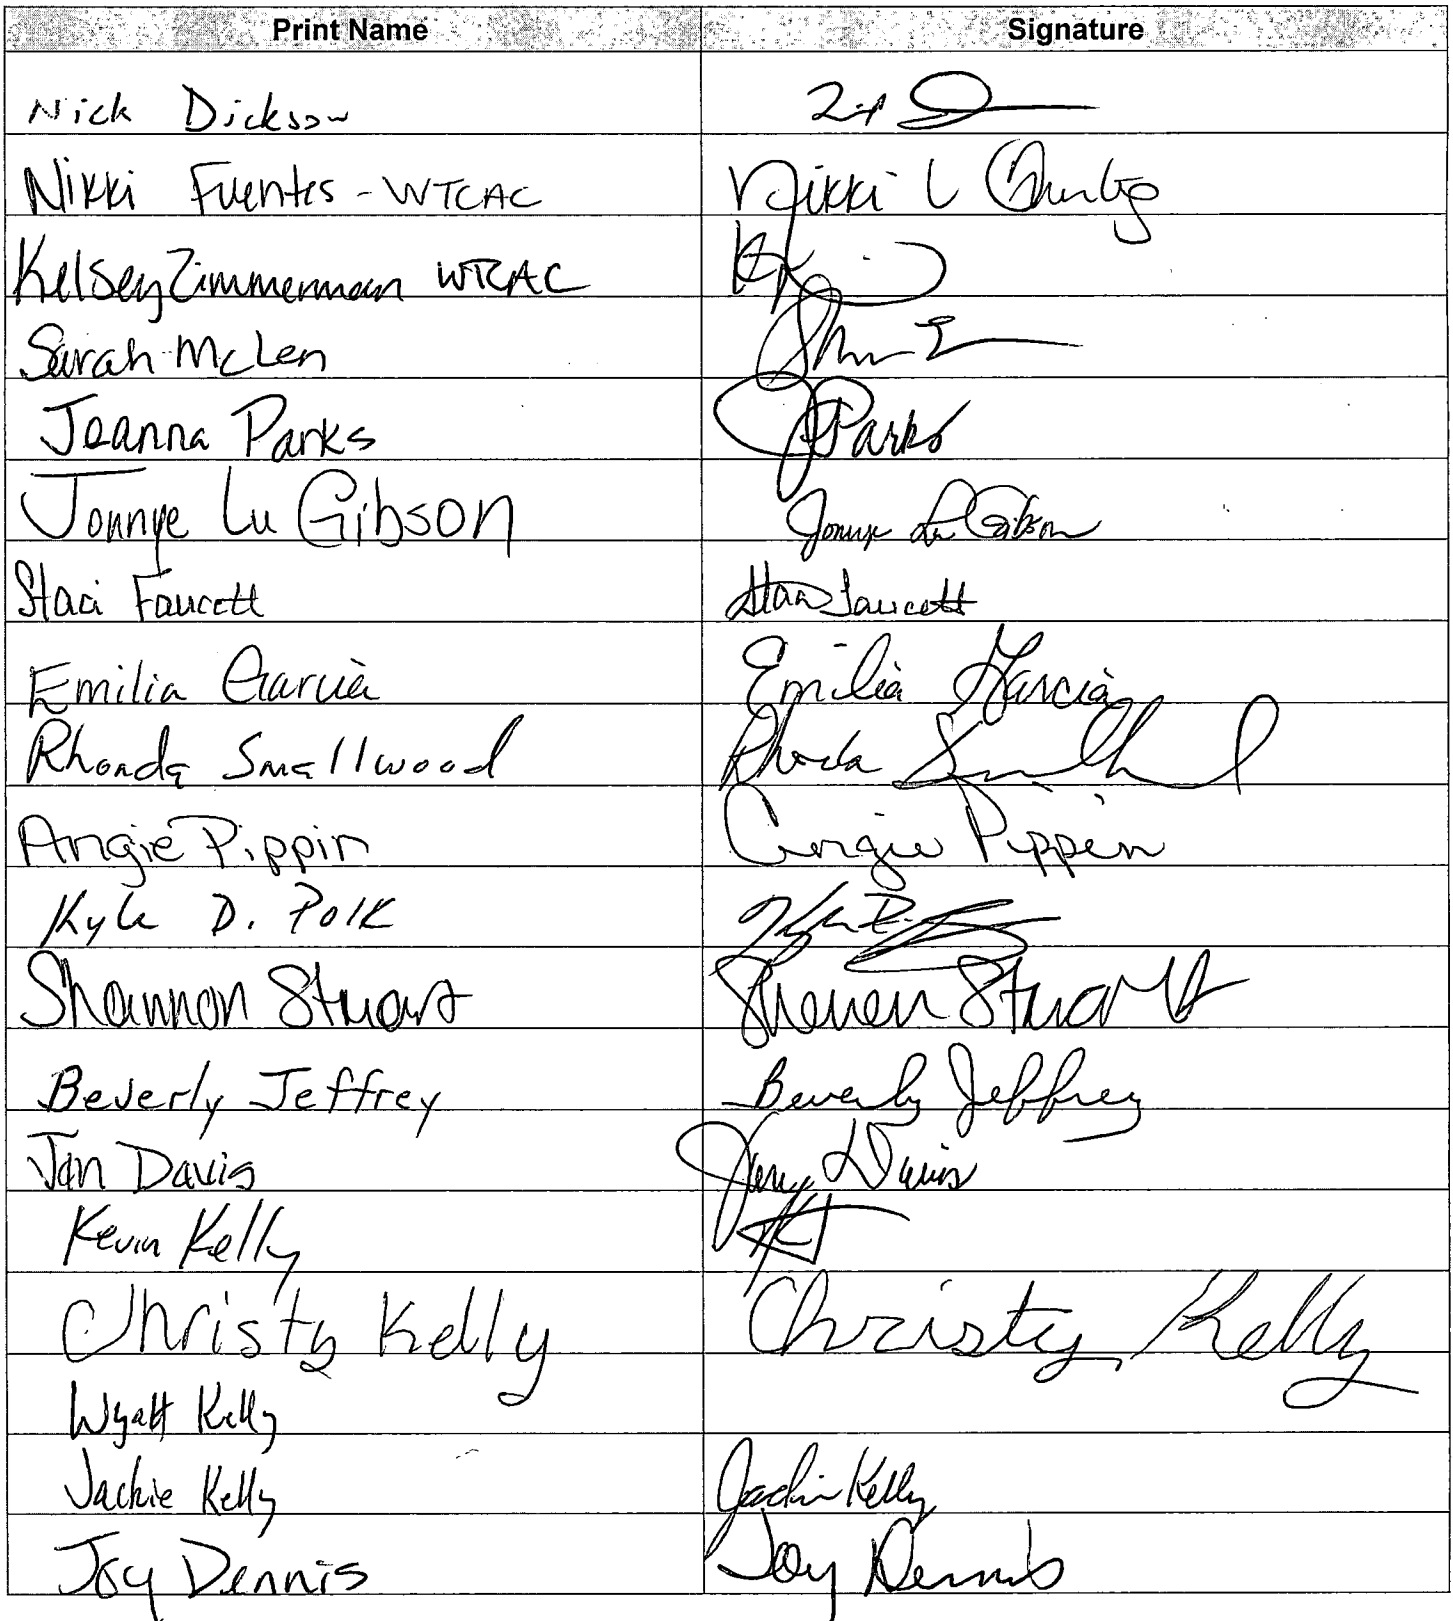 Print Name Signature
Nick Dickson
Nikki Fuentes - WTCAC Nikki L Fuentes
Kelsey Zimmerman WTCAC
Sarah McLen
Jeanna Parks JParks
Jonnye Lu Gibson Jonnye Lu Gibson
Staci Faucett Staci Faucett
Emilia Garcia Emilia Garcia
Rhonda Smallwood Rhonda Smallwood
Angie Pippin Angie Pippin
Kyle D. Polk
Shannon Stuart Shannon Stuart
Beverly Jeffrey Beverly Jeffrey
Jan Davis Jan Davis
Kevin Kelly
Christy Kelly Christy Kelly
Wyatt Kelly
Jackie Kelly Jackie Kelly
Joy Dennis Joy Dennis